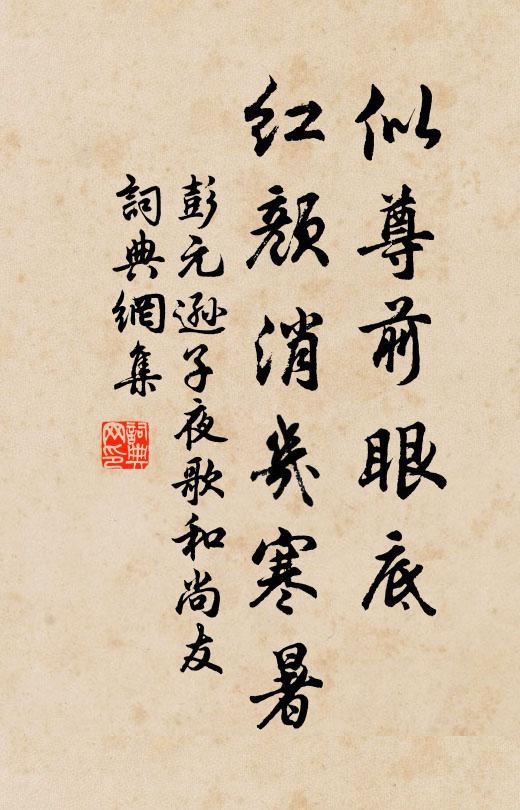 似尊前眼底
紅顏消幾寒暑
彭元遜子夜歌和尚友
詞典網集
詞典
网印